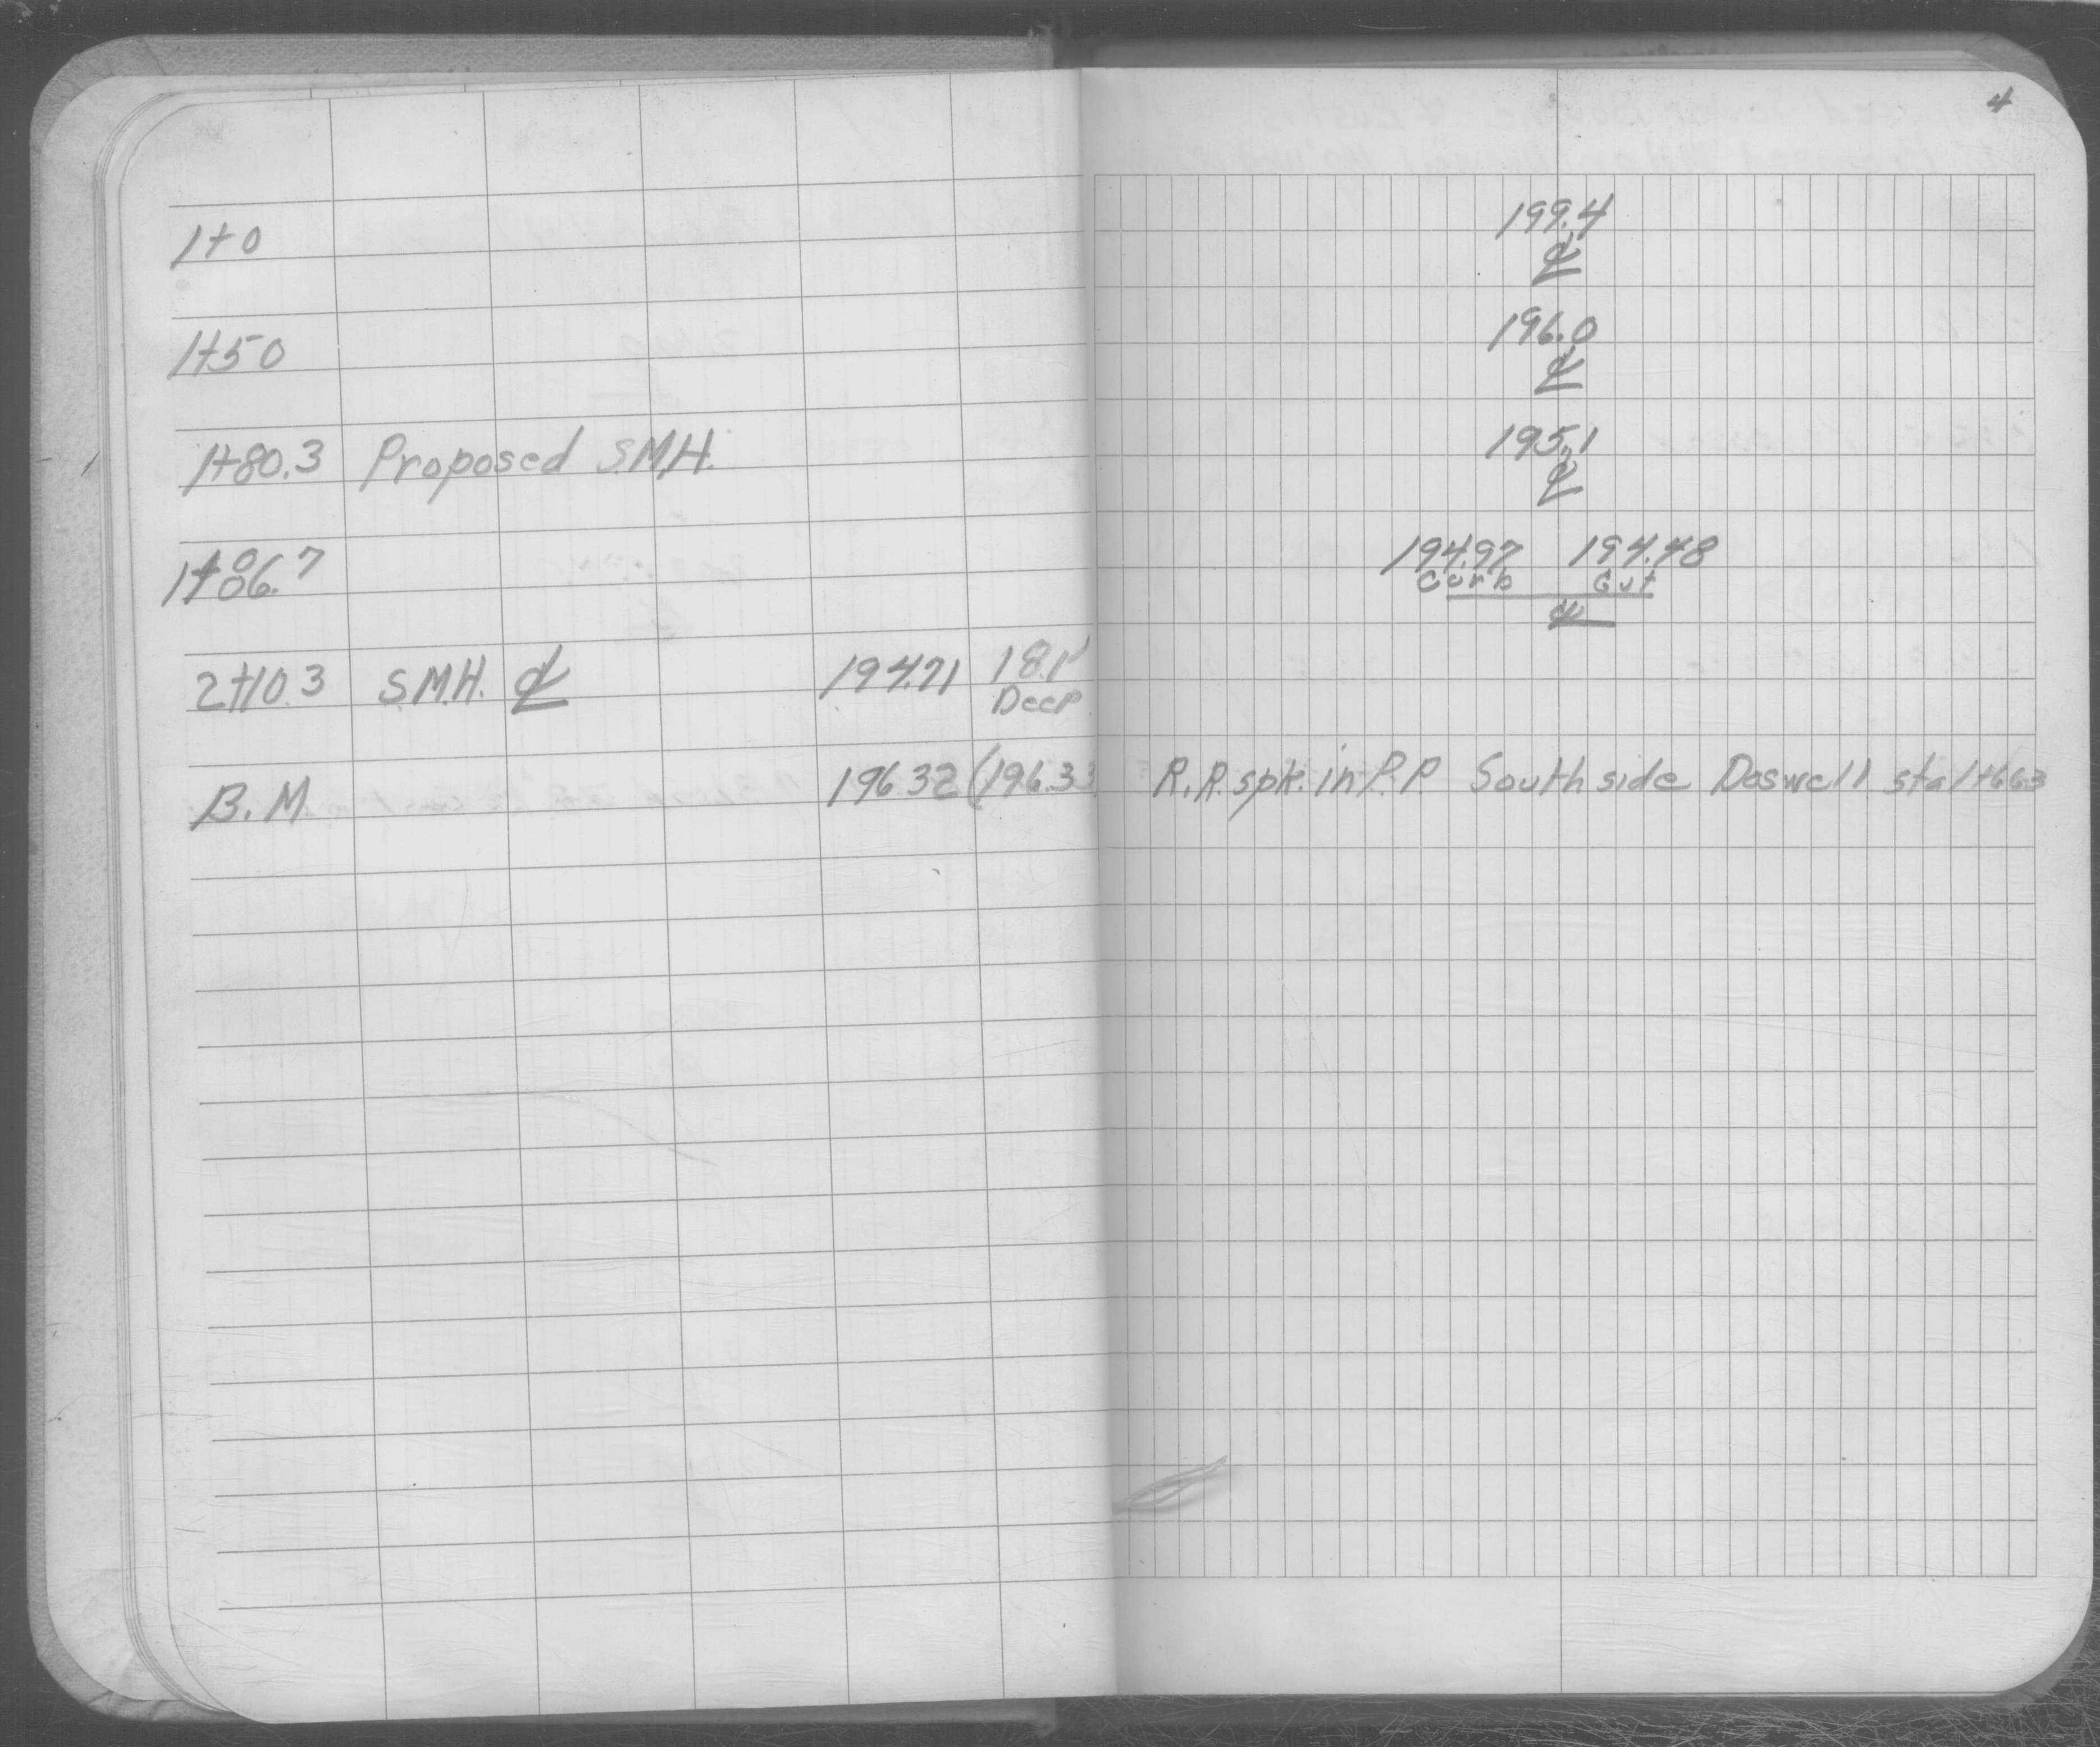 4
1+0 199.4
℄
1+50 196.0
℄
1+80.3 Proposed S.M.H. 195.1
℄
1+86.7 194.97 194.48
Curb Gut
℄
2+10.3 S.M.H. ℄ 194.71 18.1'
Deep
B.M. 196.32 (196.33 R.R. spk. in P.P South side Doswell sta 1+66.3